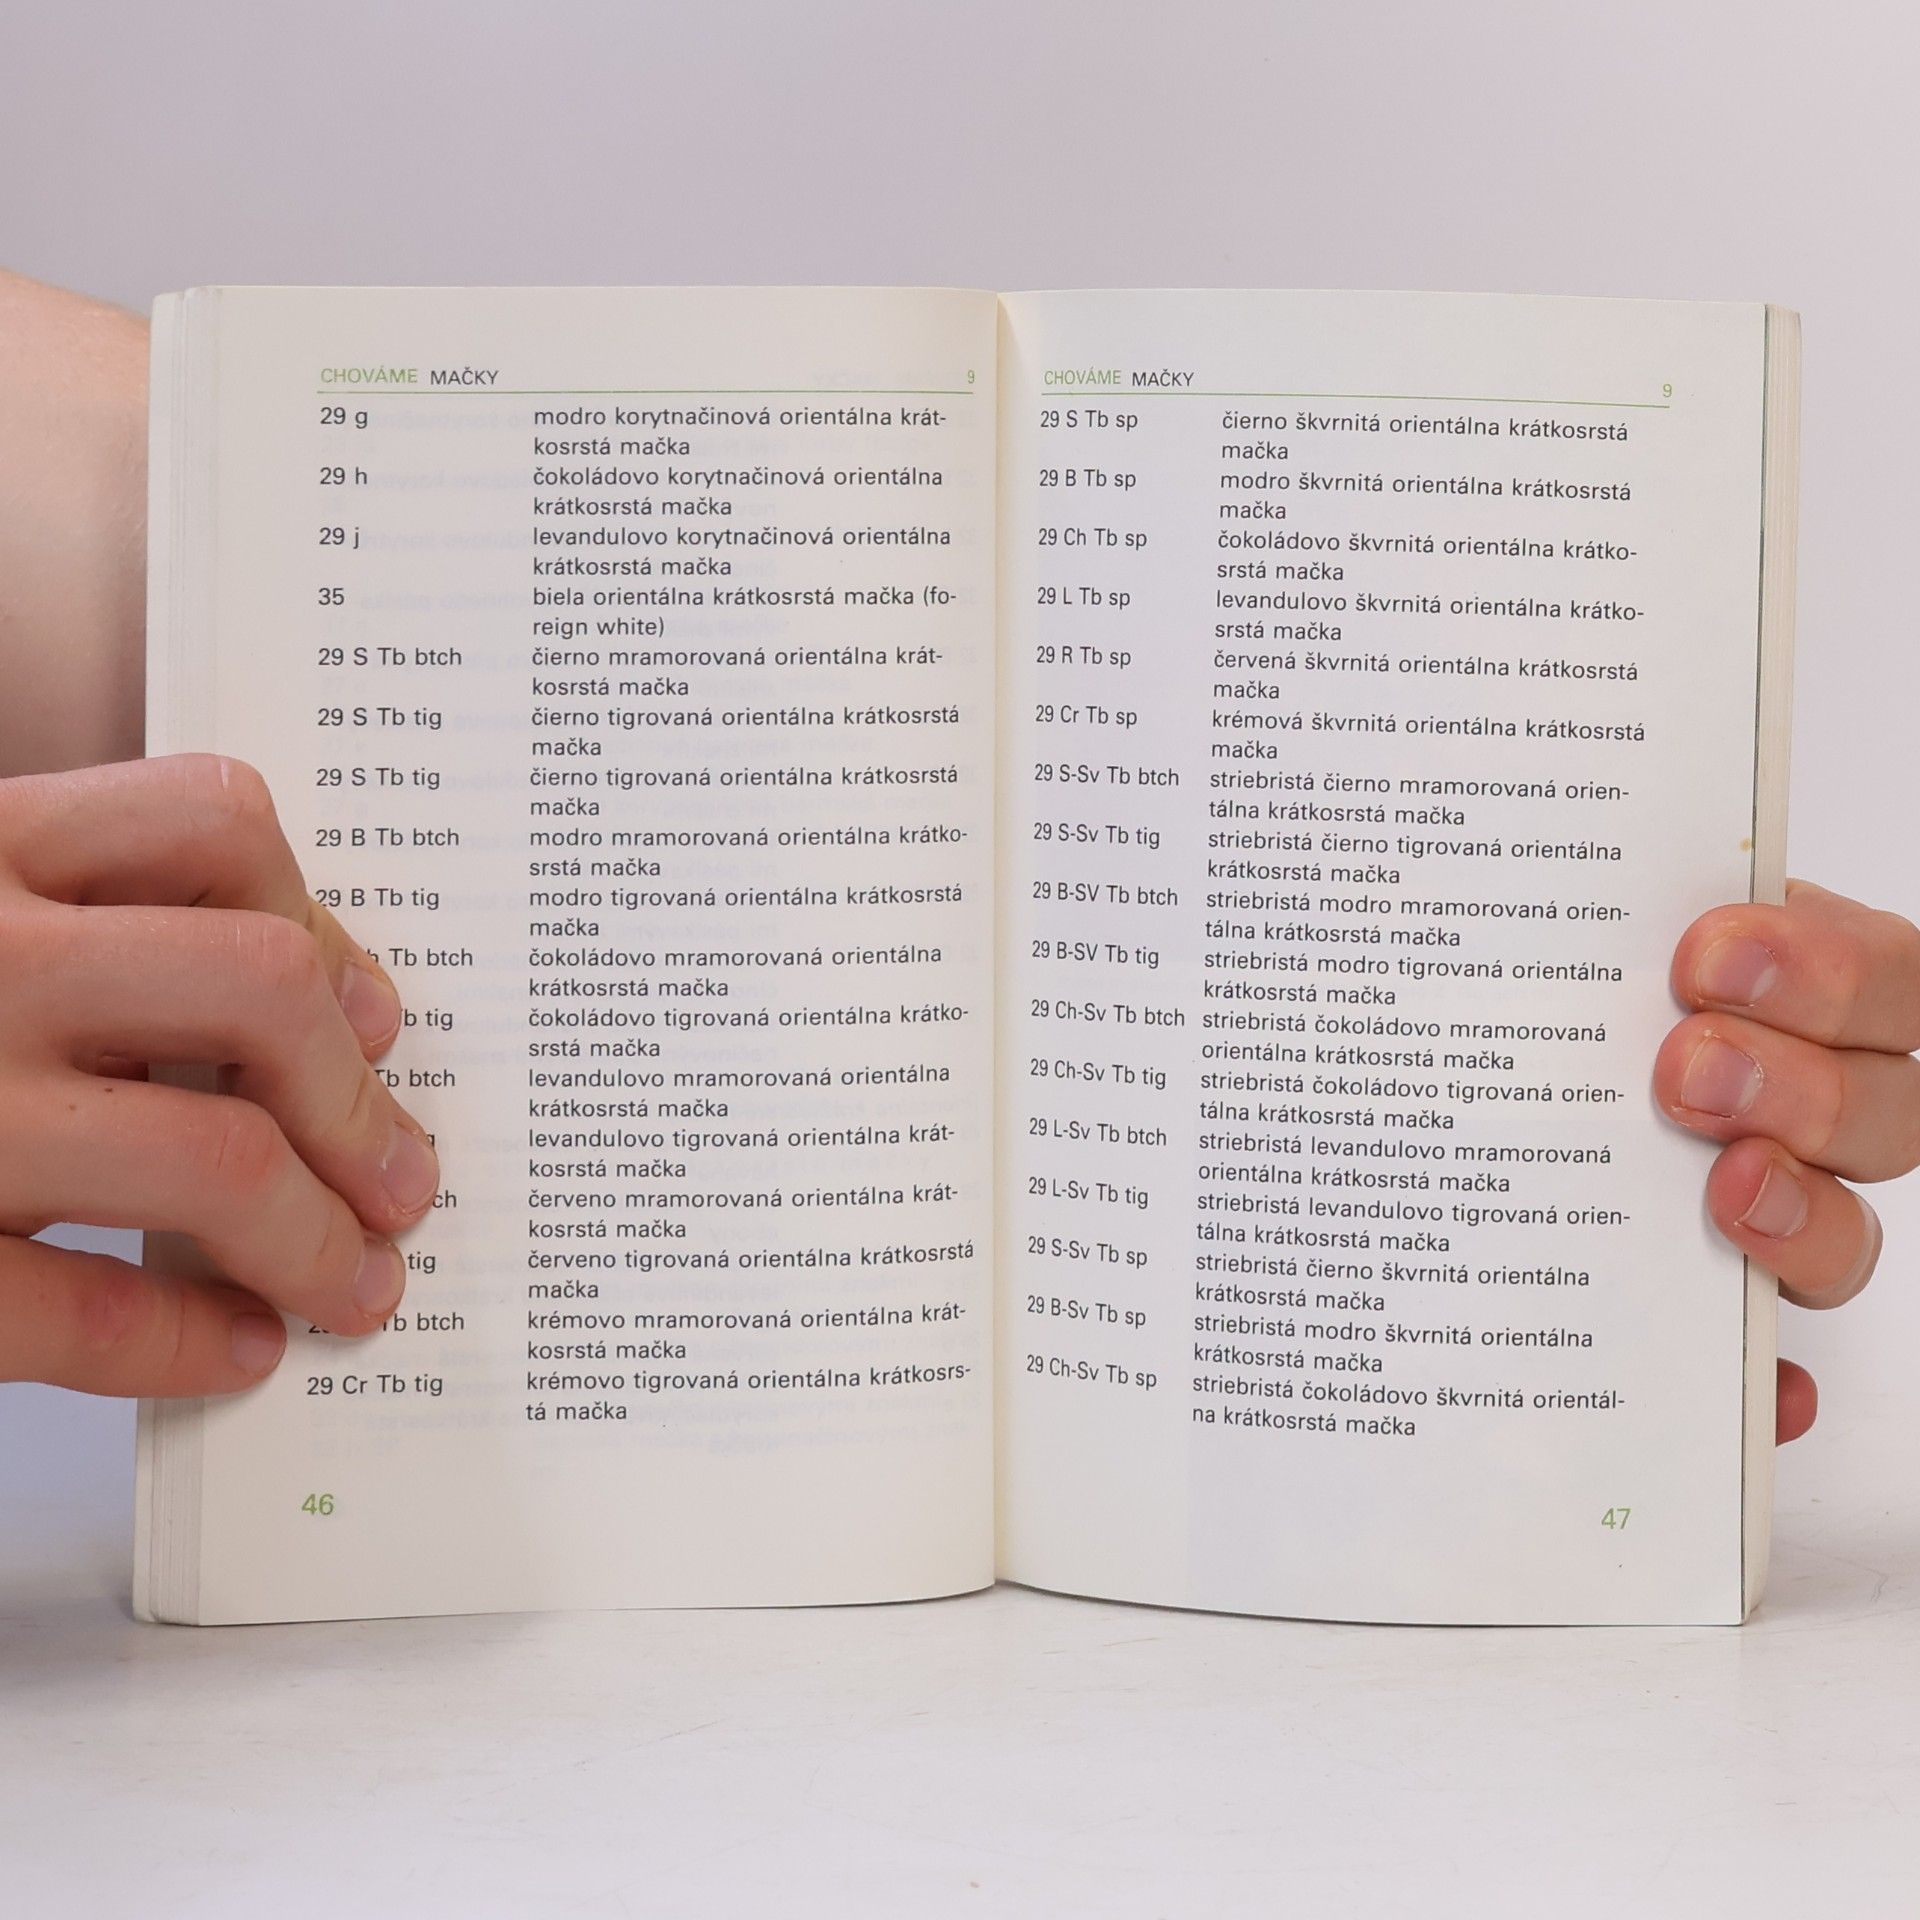 CHOVÁME MAČKY 9
29 g modro korytnačinová orientálna krát-
kosrstá mačka
29 h čokoládovo korytnačinová orientálna
krátkosrstá mačka
29 j levandulovo korytnačinová orientálna
krátkosrstá mačka
35 biela orientálna krátkosrstá mačka (fo-
reign white)
29 S Tb btch čierno mramorovaná orientálna krát-
kosrstá mačka
29 S Tb tig čierno tigrovaná orientálna krátkosrstá
mačka
29 S Tb tig čierno tigrovaná orientálna krátkosrstá
mačka
29 B Tb btch modro mramorovaná orientálna krátko-
srstá mačka
29 B Tb tig modro tigrovaná orientálna krátkosrstá
mačka
Tb btch čokoládovo mramorovaná orientálna
krátkosrstá mačka
tig čokoládovo tigrovaná orientálna krátko-
srstá mačka
Tb btch levandulovo mramorovaná orientálna
krátkosrstá mačka
levandulovo tigrovaná orientálna krát-
kosrstá mačka
červeno mramorovaná orientálna krát-
kosrstá mačka
tig červeno tigrovaná orientálna krátkosrstá
mačka
Tb btch krémovo mramorovaná orientálna krát-
kosrstá mačka
29 Cr Tb tig krémovo tigrovaná orientálna krátkosrs-
tá mačka
46
CHOVÁME MAČKY 9
29 S Tb sp čierno škvrnitá orientálna krátkosrstá
mačka
29 B Tb sp modro škvrnitá orientálna krátkosrstá
mačka
29 Ch Tb sp čokoládovo škvrnitá orientálna krátko-
srstá mačka
29 L Tb sp levandulovo škvrnitá orientálna krátko-
srstá mačka
29 R Tb sp červená škvrnitá orientálna krátkosrstá
mačka
29 Cr Tb sp krémová škvrnitá orientálna krátkosrstá
mačka
29 S-Sv Tb btch striebristá čierno mramorovaná orien-
tálna krátkosrstá mačka
29 S-Sv Tb tig striebristá čierno tigrovaná orientálna
krátkosrstá mačka
29 B-SV Tb btch striebristá modro mramorovaná orien-
tálna krátkosrstá mačka
29 B-SV Tb tig striebristá modro tigrovaná orientálna
krátkosrstá mačka
29 Ch-Sv Tb btch striebristá čokoládovo mramorovaná
orientálna krátkosrstá mačka
29 Ch-Sv Tb tig striebristá čokoládovo tigrovaná orien-
tálna krátkosrstá mačka
29 L-Sv Tb btch striebristá levandulovo mramorovaná
orientálna krátkosrstá mačka
29 L-Sv Tb tig striebristá levandulovo tigrovaná orien-
tálna krátkosrstá mačka
29 S-Sv Tb sp striebristá čierno škvrnitá orientálna
krátkosrstá mačka
29 B-Sv Tb sp striebristá modro škvrnitá orientálna
krátkosrstá mačka
29 Ch-Sv Tb sp striebristá čokoládovo škvrnitá orientál-
na krátkosrstá mačka
47